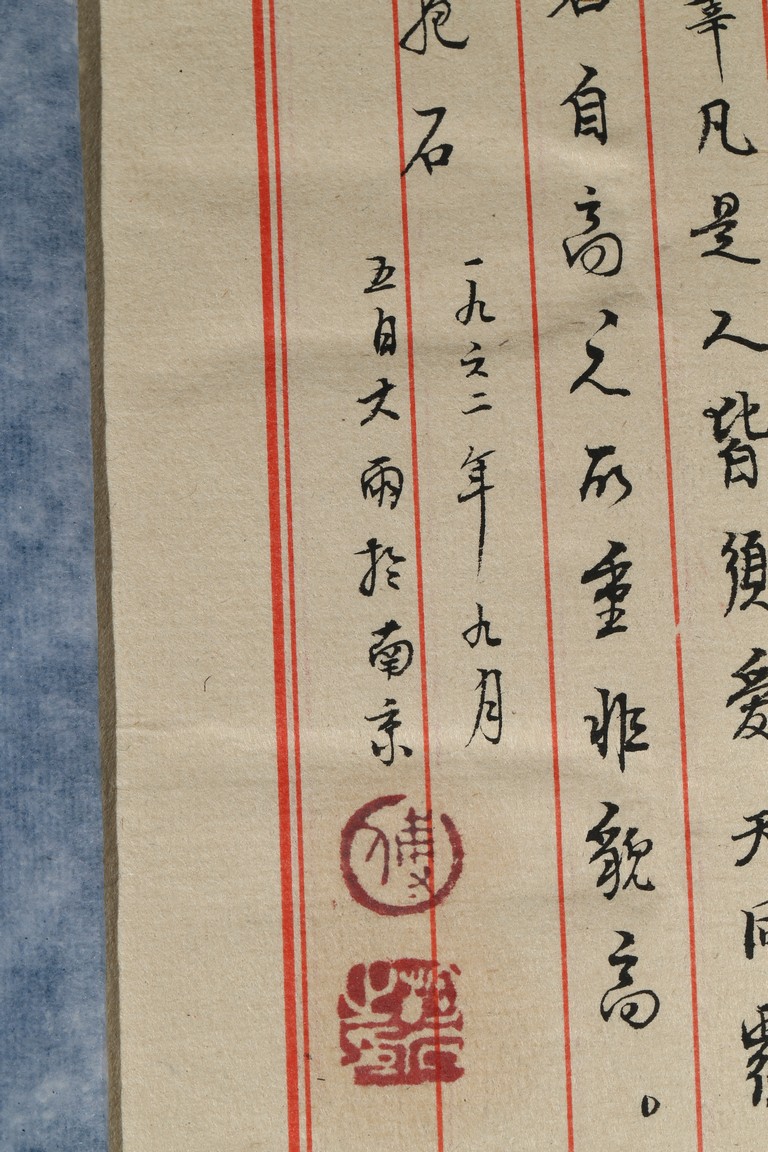 辜凡是人皆須愛天同覆
名自高所重非貌高。
抱石
一九六二年九月
五日大雨於南京
傅